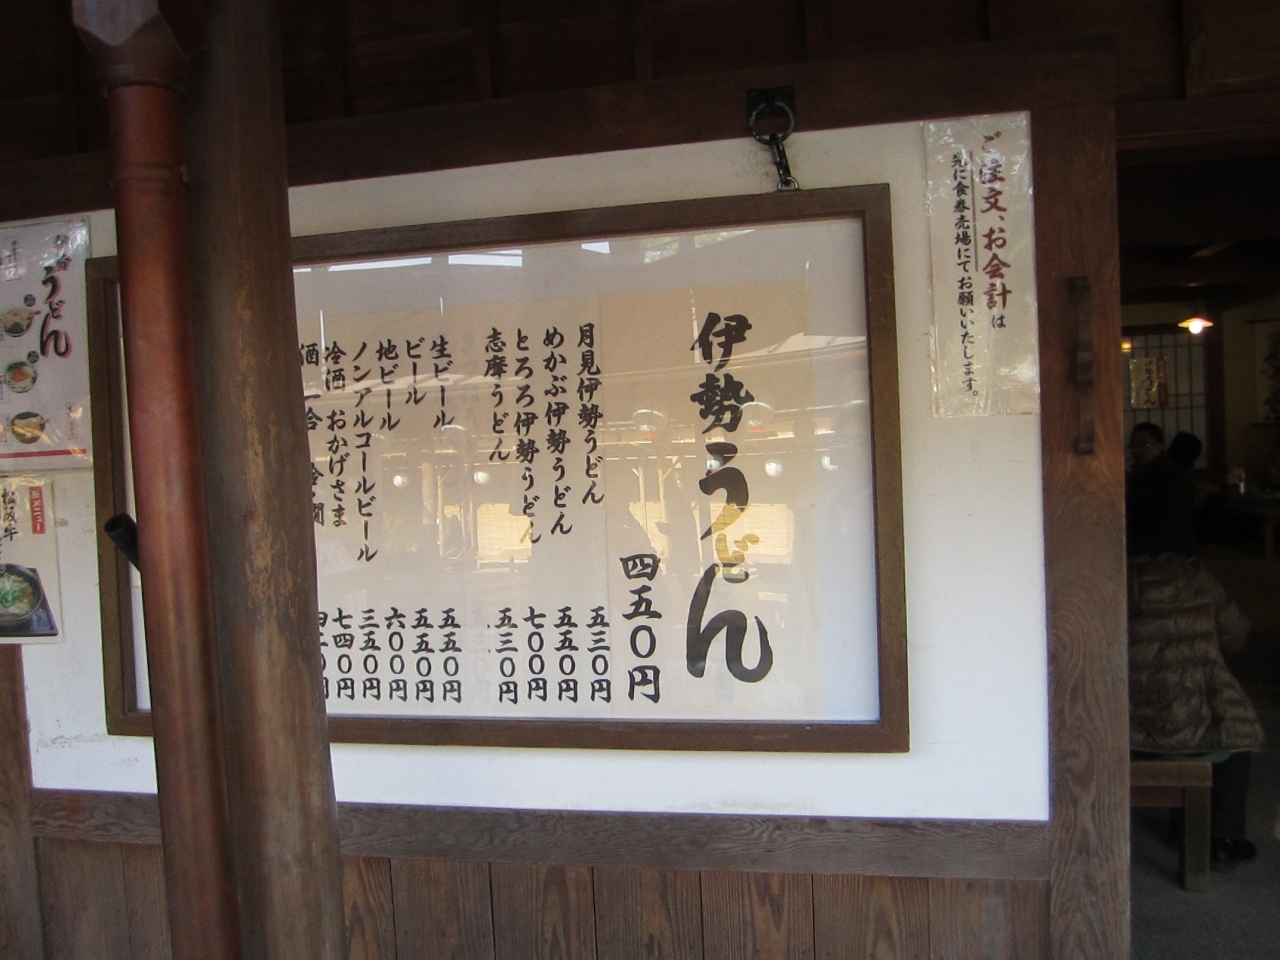 ご注文、お会計は
先に食券売場にてお願いいたします。
伊勢うどん
四五〇円
月見伊勢うどん 五三〇円
めかぶ伊勢うどん 五五〇円
とろろ伊勢うどん 七〇〇円
志摩うどん 五三〇円
生ビール 五五〇円
ビール 五五〇円
地ビール 六〇〇円
ノンアルコールビール 三五〇円
冷酒 おかげさま 七四〇円
酒 一合
うどん
新メニュー
松阪牛